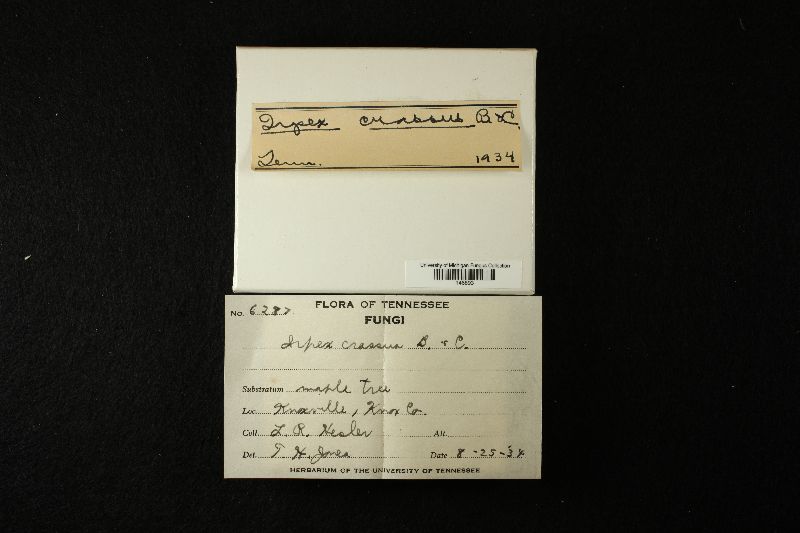 Irpex crassus B & C.
Tenn. 1934
University of Michigan Fungus Collection
FLORA OF TENNESSEE
No. 6287
FUNGI
Irpex crassus B. & C.
Substratum maple tree
Loc. Knoxville, Knox Co.
Coll. L R. Hesler Alt.
Det. Date 8-25-34
HERBARIUM OF THE UNIVERSITY OF TENNESSEE